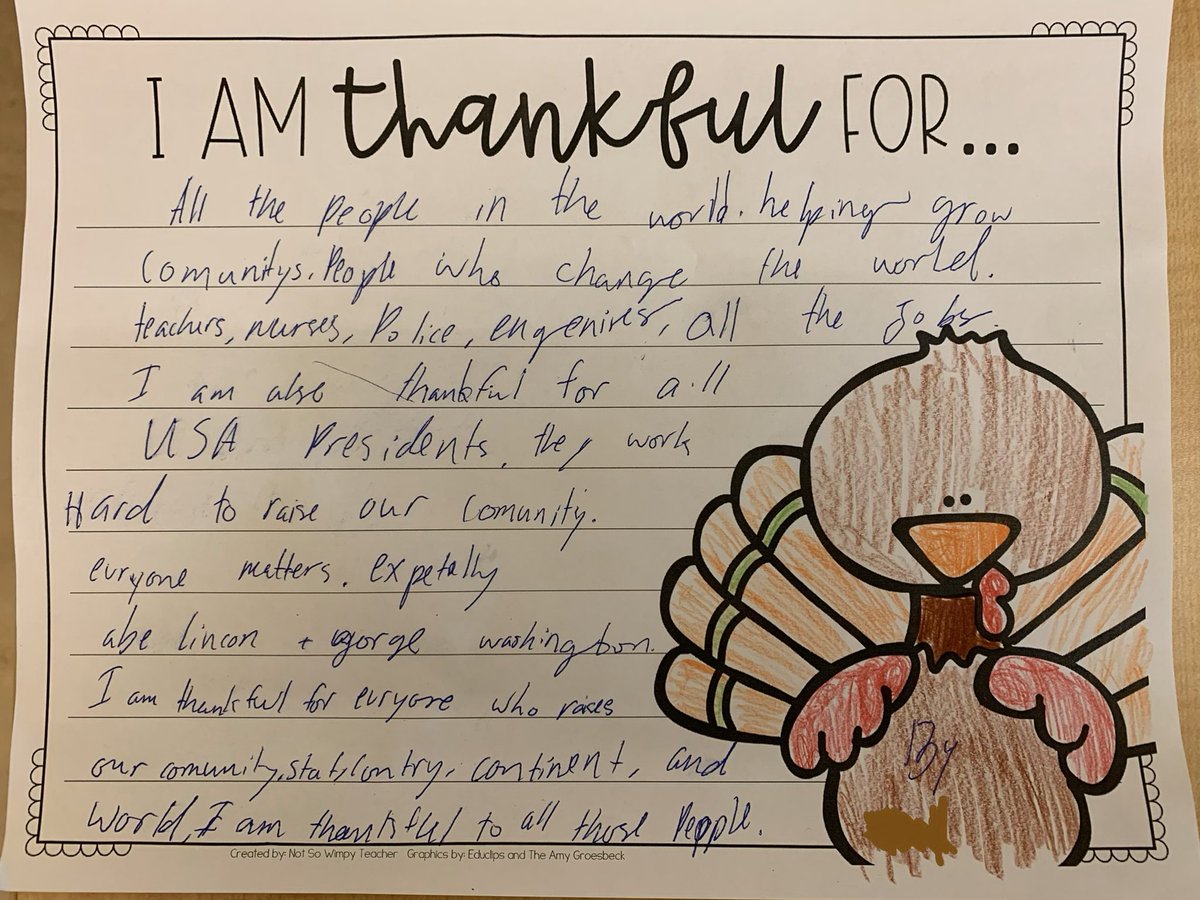 I AM thankful FOR...
All the people in the world. helping grow
Comunitys. People who change the world.
teachurs, nurses, Police, engenires, all the Jobs.
I am also thankful for all
USA Presidents, they work
Hard to raise our comunity.
euryone matters. expetally
abe lincon + george washington.
I am thankful for euryone who raises
our comunity, stat, contry, continent, and
World, I am thankful to all those People.
By
Created by: Not So Wimpy Teacher Graphics by: Educlips and The Amy Groesbeck